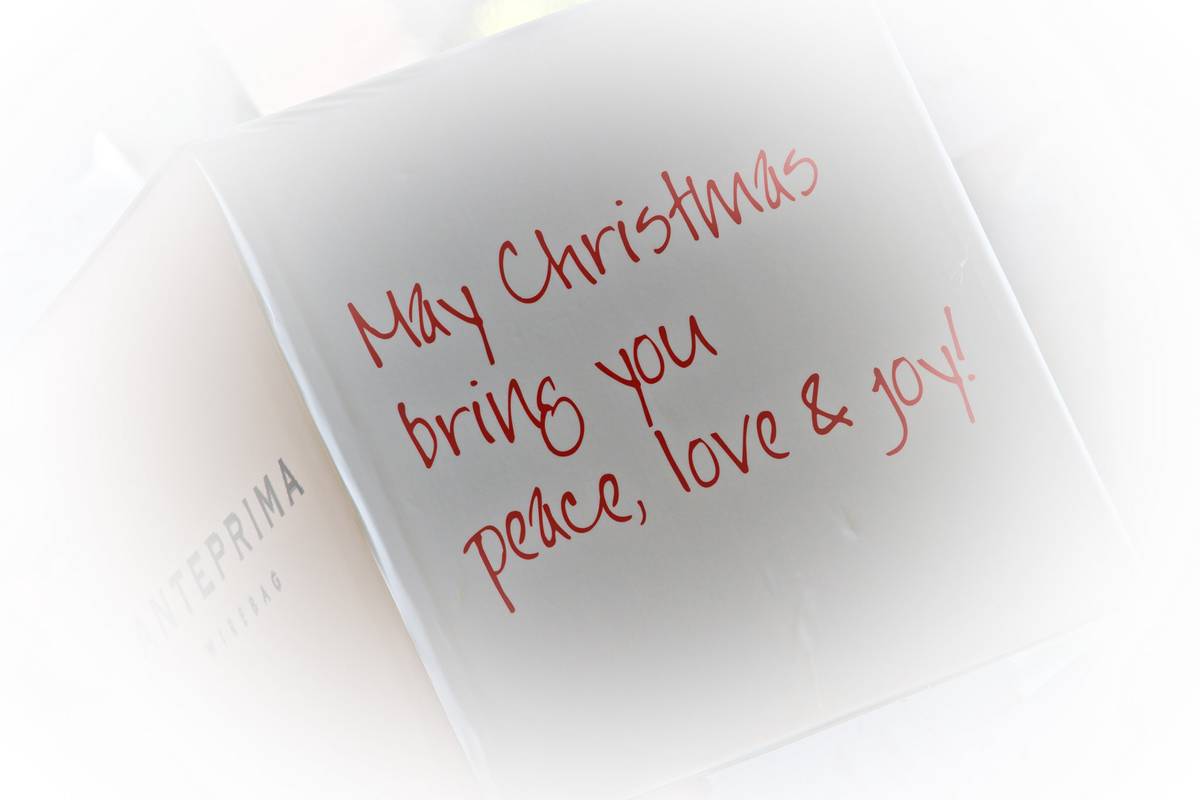 May Christmas
bring you
peace, love & joy!
ANTEPRIMA
WIREBAG